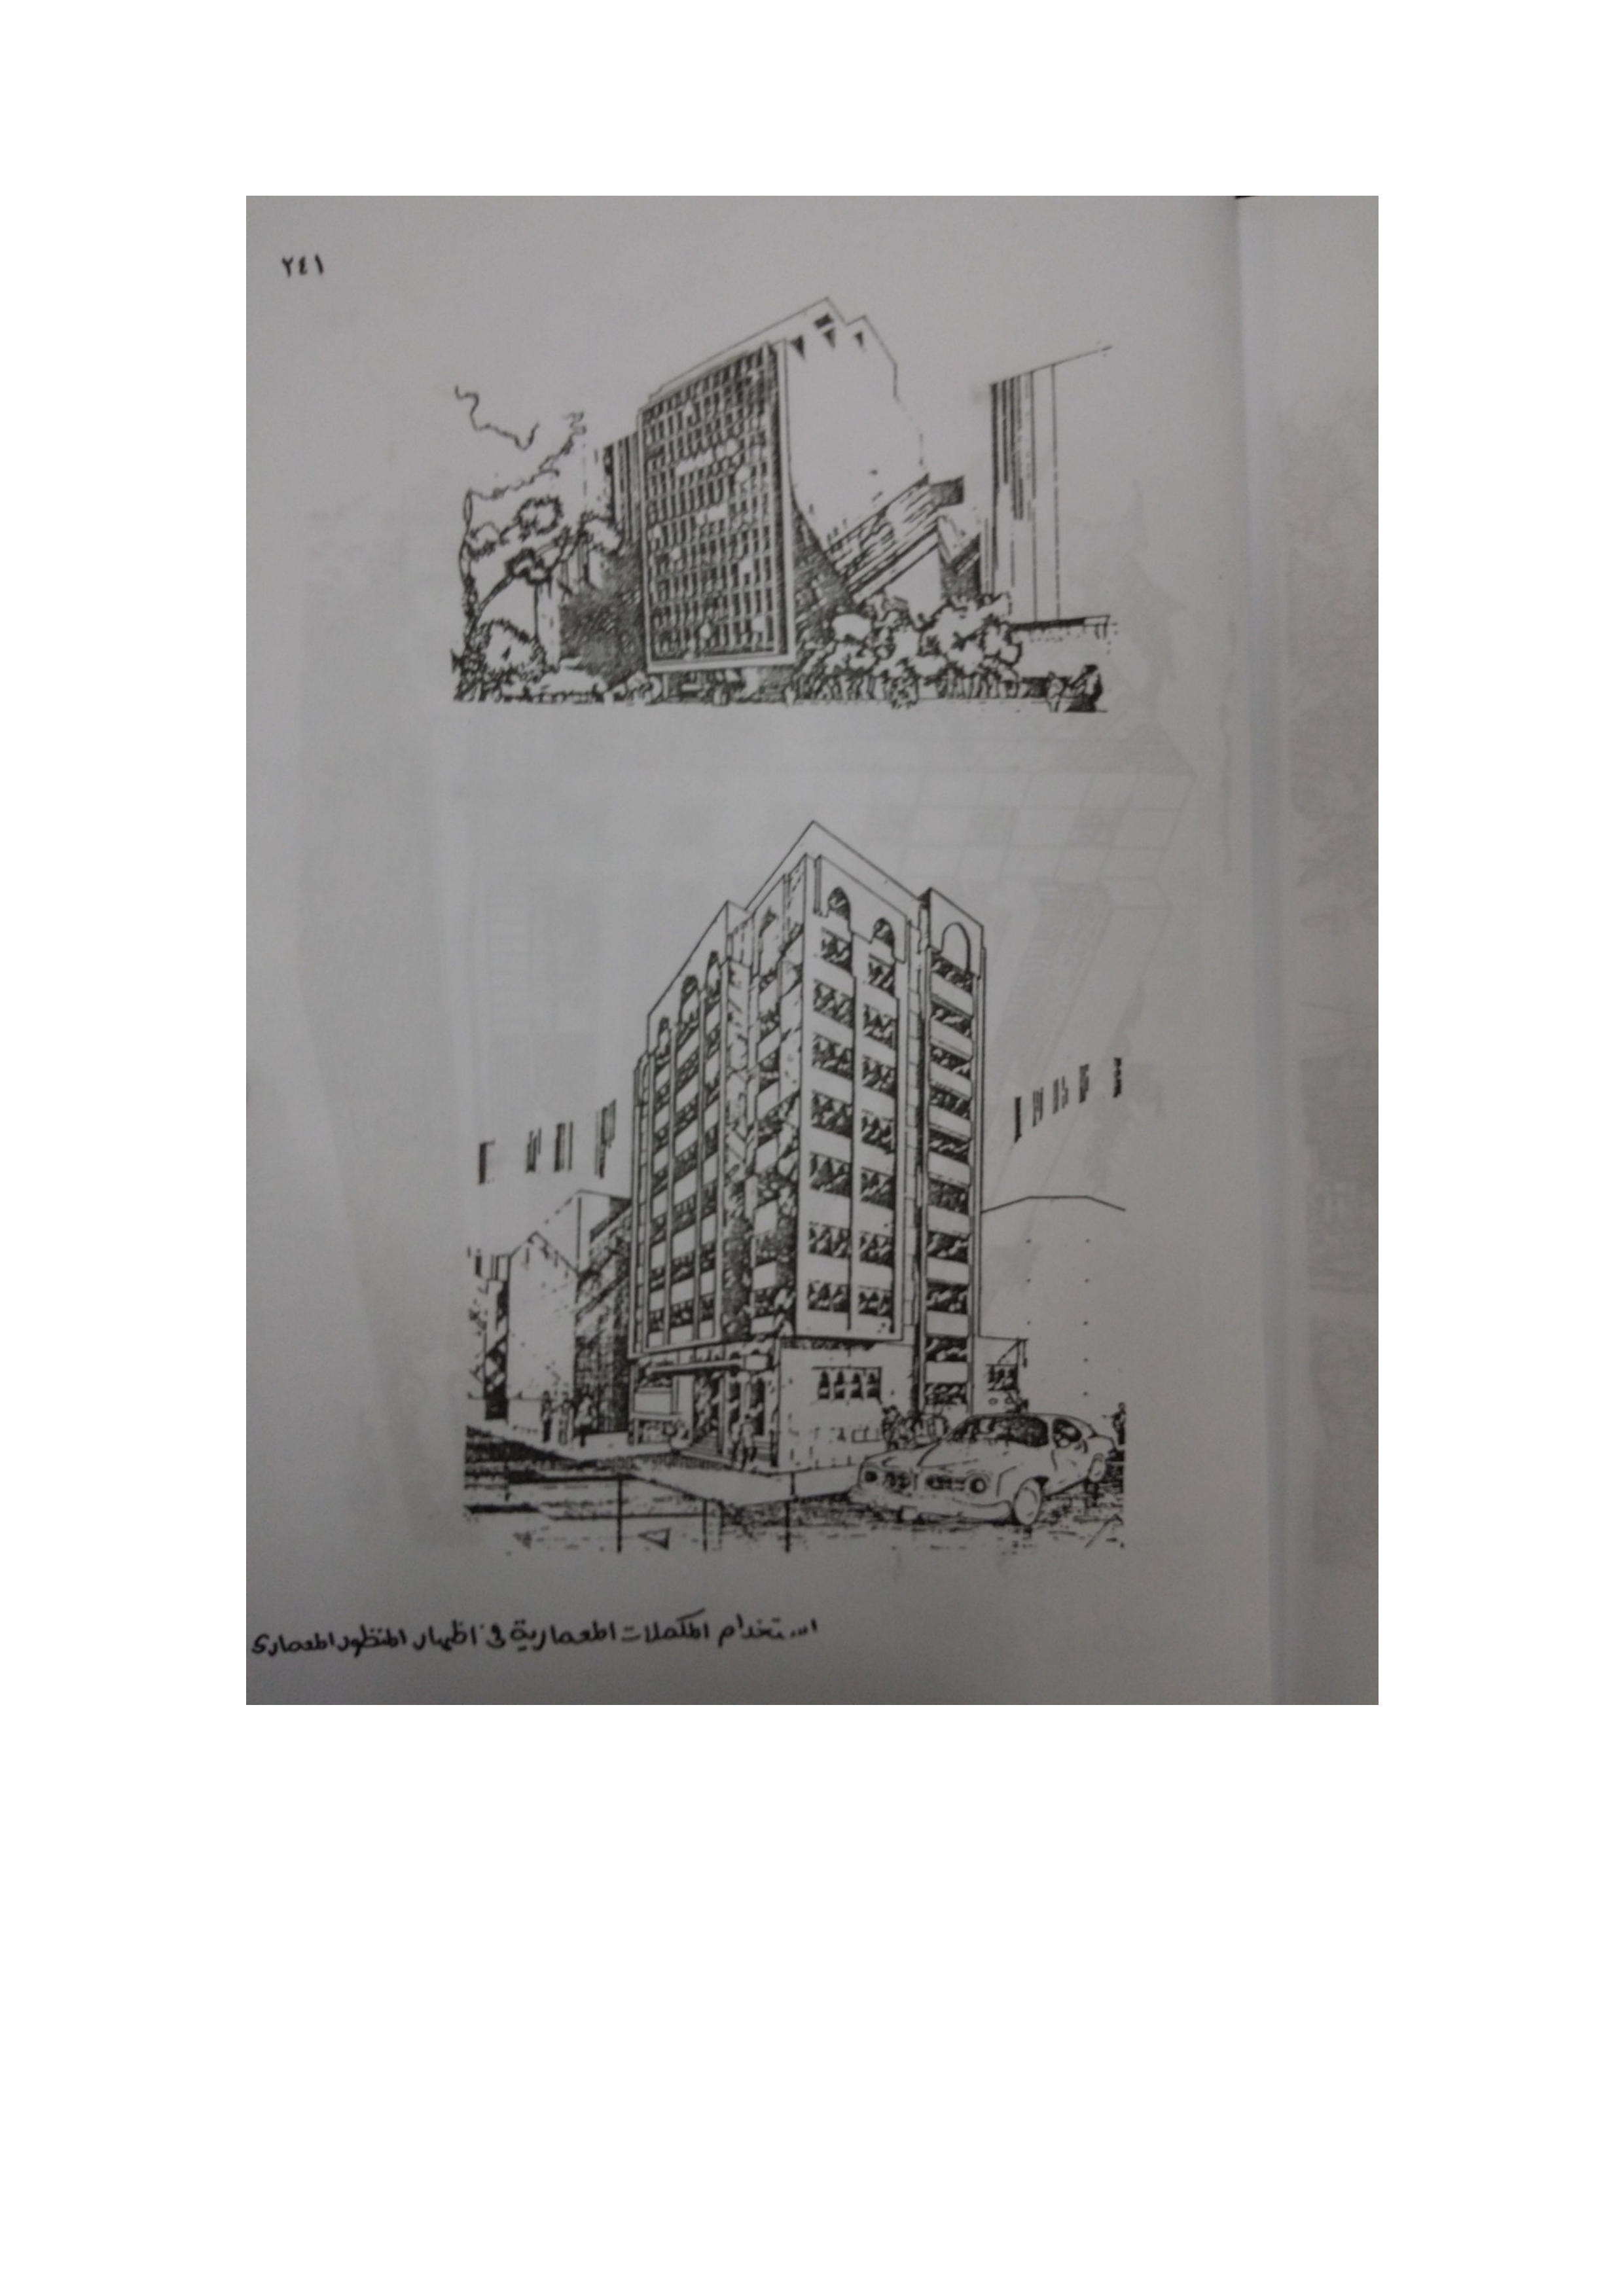 ٢٤١
استخدام المكملات المعمارية في اظهار المنظور المعمارى